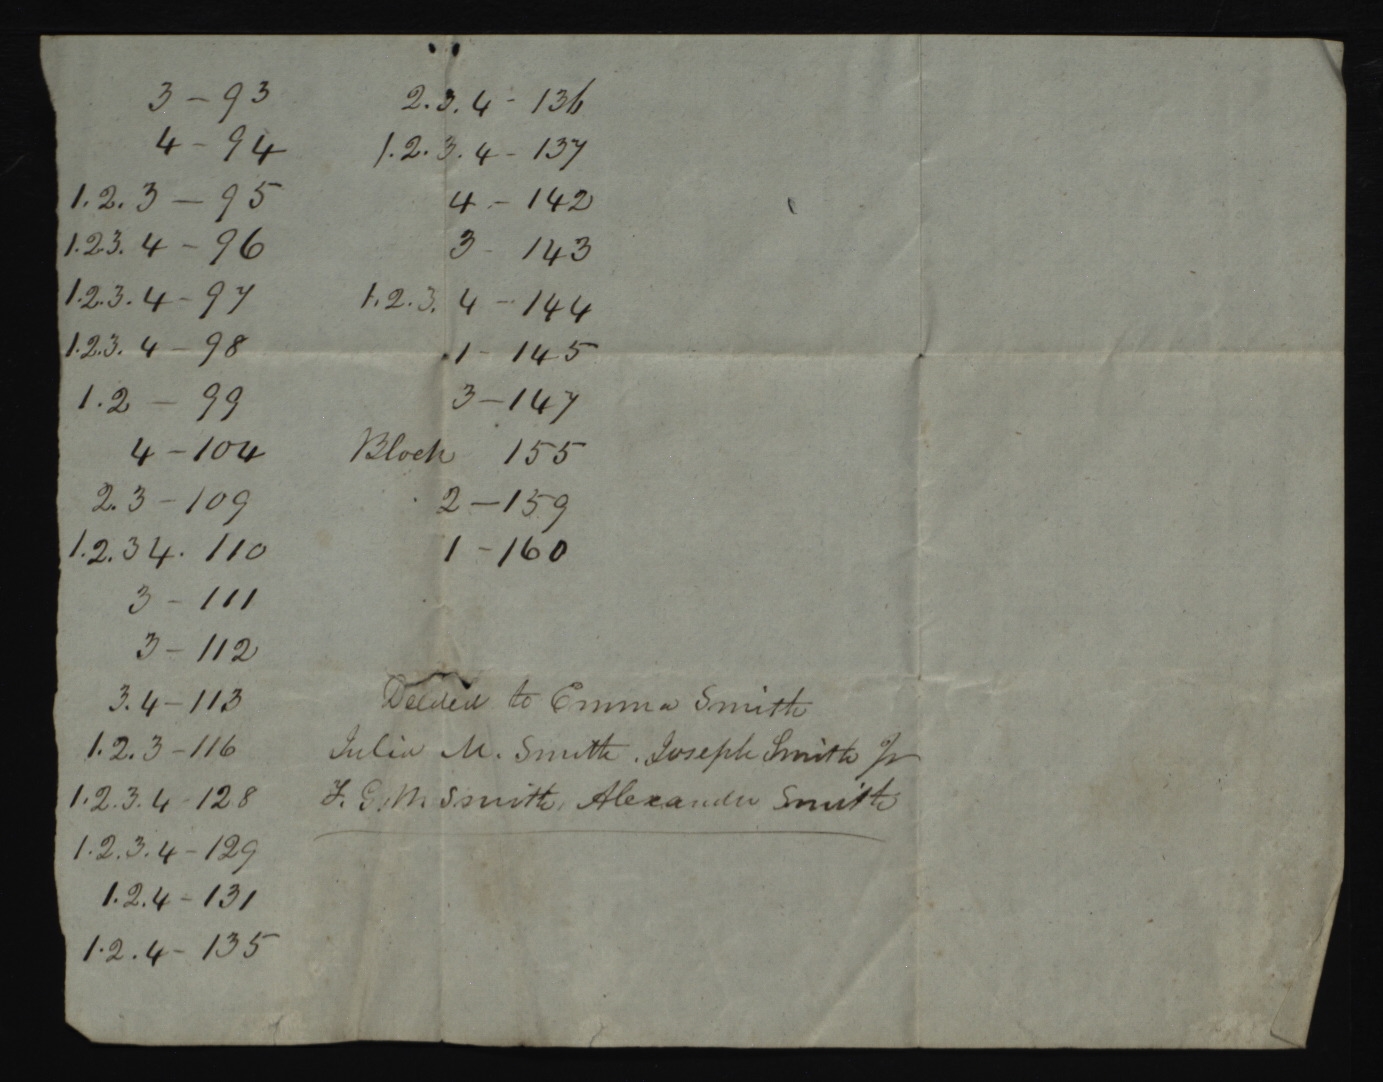 3 - 93
4 - 94
1. 2. 3 - 95
1. 2. 3. 4 - 96
1. 2. 3. 4 - 97
1. 2. 3. 4 - 98
1. 2 - 99
4 - 104
2. 3 - 109
1. 2. 3 4. 110
3 - 111
3 - 112
3. 4 - 113
1. 2. 3 - 116
1. 2. 3. 4 - 128
1. 2. 3. 4 - 129
1. 2. 4 - 131
1. 2. 4 - 135
2. 3. 4 - 136
1. 2. 3. 4 - 137
4 - 142
3 - 143
1. 2. 3. 4 - 144
1 - 145
3 - 147
Block 155
2 - 159
1 - 160
Deeded to Emma Smith
Julia M. Smith. Joseph Smith Jr
F. G. M Smith, Alexander Smith